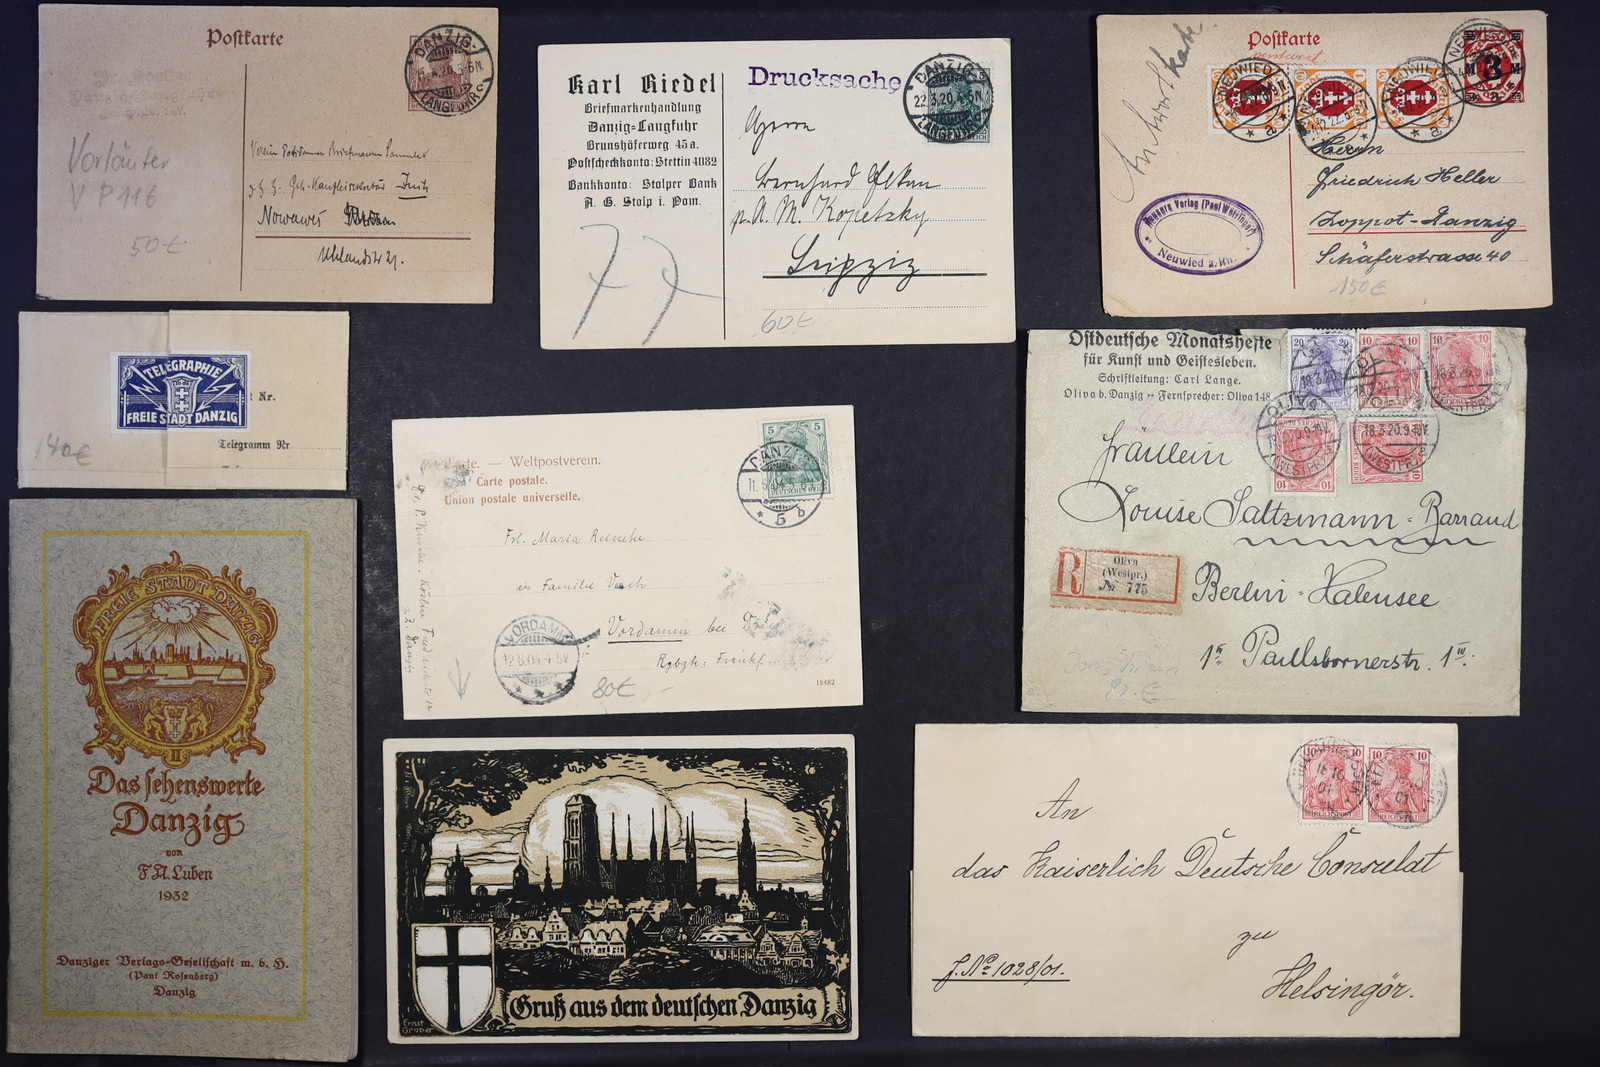 Postkarte
DANZIG-
LANGFUHR
Vorläufer
V P 116
50€
Verein Potsdamer Briefmarken Sammler
Nowawes
Uhlandstr 21.
Karl Riedel
Briefmarkenhandlung
Danzig-Langfuhr
Brunshöferweg 45a.
Postscheckkonto: Stettin 4082
Bankkonto: Stolper Bank
A. G. Stolp i. Pom.
Drucksache
DANZIG-
22.3.20.4-5N
LANGFUHR
Herrn
Bernhard
p. A. M. Kopetzky
Leipzig
60€
Antwortkarte
Postkarte
NEUWIED
NEUWIED
Herrn
Friedrich Heller
Zoppot-Danzig
Schäferstrasse 40
150€
Neuwied a. Rh.
TELEGRAPHIE
FREIE STADT DANZIG
Nr.
Telegramm Nr.
140€
Weltpostverein.
Carte postale.
Union postale universelle.
5 5
DANZIG
5 b
Frl. Maria Reineke
in Familie
Vordamm bei
VORDAMM
80€
18482
Ostdeutsche Monatshefte
für Kunst und Geistesleben.
Schriftleitung: Carl Lange.
Oliva b. Danzig Fernsprecher: Oliva 148
20 20
10 10
10 10
OLIVA
18.3.20.9-10V
(WESTPR)
Fräulein
Louise Saltzmann-Barrand
R
Oliva
(Westpr.)
№ 775
Berlin-Halensee
Paulsbornerstr. 1 III.
FREIE STADT DANZIG
Das sehenswerte
Danzig
von
F.A. Luben
1932
Danziger Verlags-Gesellschaft m. b. H.
(Paul Rosenberg)
Danzig
Gruß aus dem deutschen Danzig
Ernst
Gruber
10 10
10 10
An
das Kaiserlich Deutsche Consulat
zu
Helsingör.
J. No 1028/01.